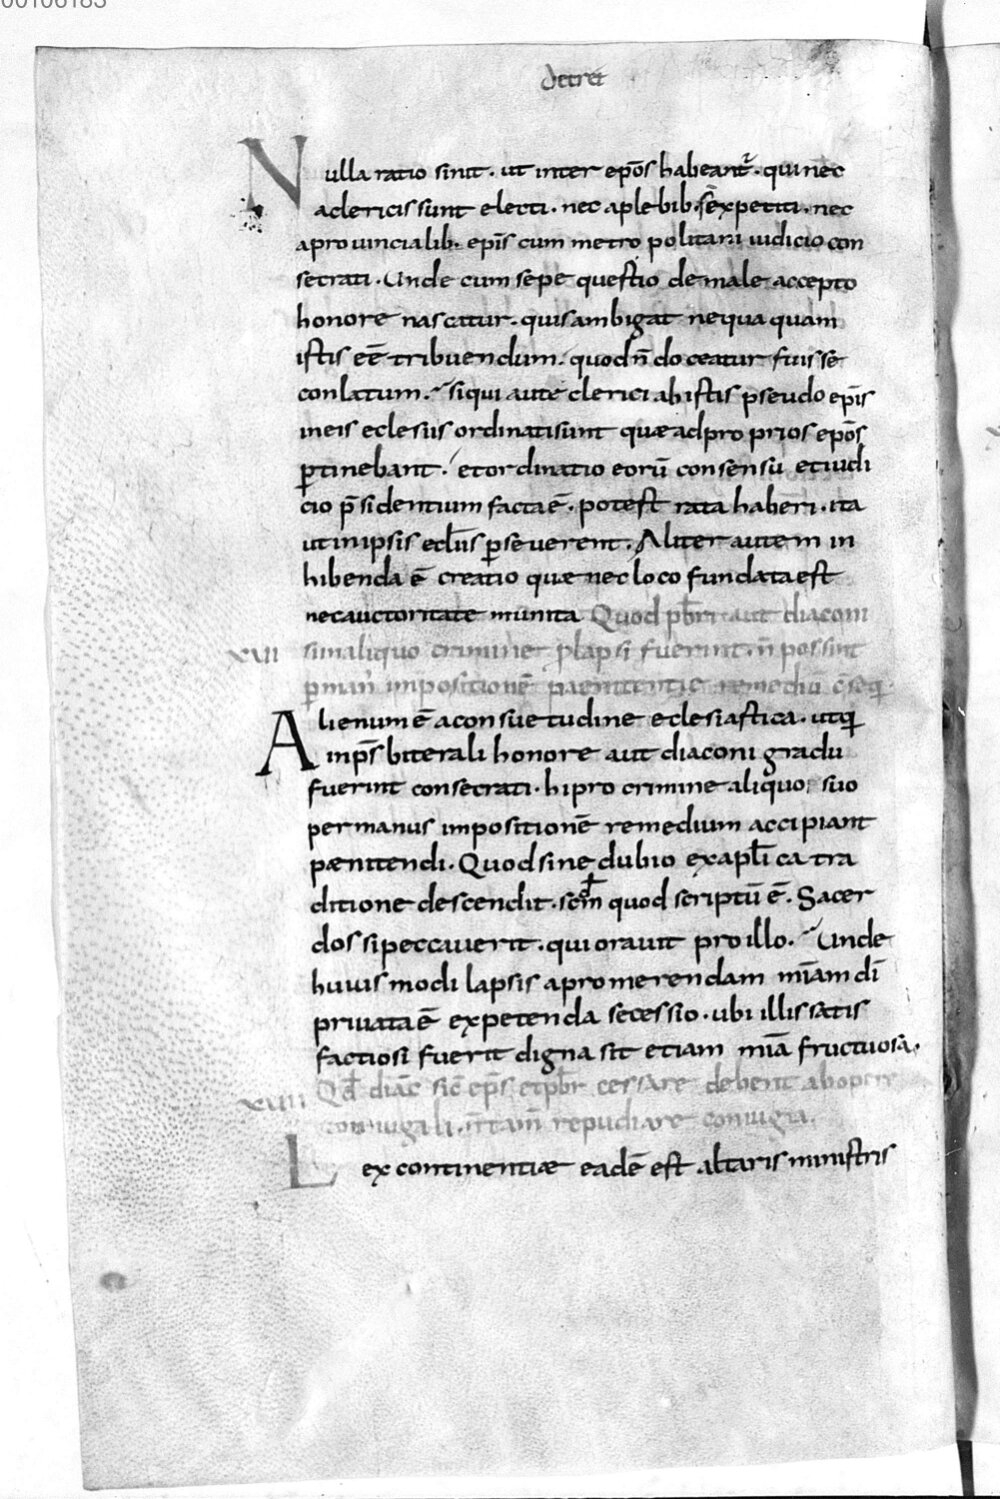 00106183
decret
Nulla ratio sinit. ut inter ep̄os habeant᷑. qui nec
a clericis sunt electi. nec a plebib. s̄ expetiti. nec
a provincialib. ep̄is cum metropolitani iudicio con
secrati. Unde cum sepe questio de male accepto
honore nascatur. quis ambigat nequaquam
istis eē tribuendum. quod n̄ doceatur fuisse
conlatum. Siqui autē clerici ab istis pseudo ep̄is
in eis eclesiis ordinati sunt quae ad proprios ep̄os
ꝑtinebant. et ordinatio eorū consensu et iudi
cio p̄sidentium facta ē. potest rata haberi. ita
ut in ipsis eccl̄iis ꝑseverent. Aliter autem in
hibenda ē creatio quae nec loco fundata est
nec auctoritate munita Quod pb̄ri aut diaconi
XVII si in aliquo crimine plapsi fuerint. n̄ possint
ꝑ man̄ impositionē paenitentie remediū c̄seq
Alienum ē a consuetudine eclesiastica. ut qi
in p̄sbiterali honore aut diaconi gradu
fuerint consecrati. hi pro crimine aliquo suo
per manus impositionē remedium accipiant
paenitendi. Quod sine dubio ex apl̄ica tra
ditione descendit. scd̄m quod scriptū ē. Sacer
dos si peccaverit. qui oravit pro illo. Unde
huius modi lapsis a promerendam m̄iam dī
privata ē expetenda secessio. ubi illis satis
factio si fuerit digna sit etiam m̄ia fructuosa.
XVIII Qd̄ diac̄ sic̄ ep̄s et pb̄r cessare debent ab opere
coniugali. n̄ tam̄ repudiare coniugia.
Lex continentiae eadē est altaris ministris